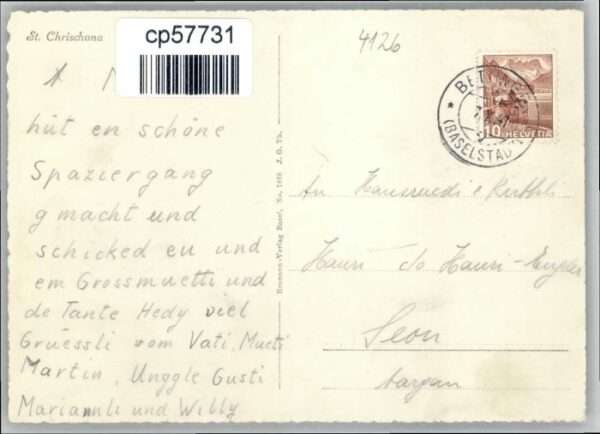 St. Chrischona
cp57731
4126
hüt en schöne
Spaziergang
g macht und
schicked eu und
em Grossmuetti und
de Tante Hedy viel
Grüessli vom Vati, Mueti
Martin, Unggle Gusti
Mariannli und Willy
Brunnen-Verlag Basel, No.
BET
(BASELSTADT)
10 HELVETIA
An Hansruedi &
Hauri c/o Hauri-
Seon
Aargau